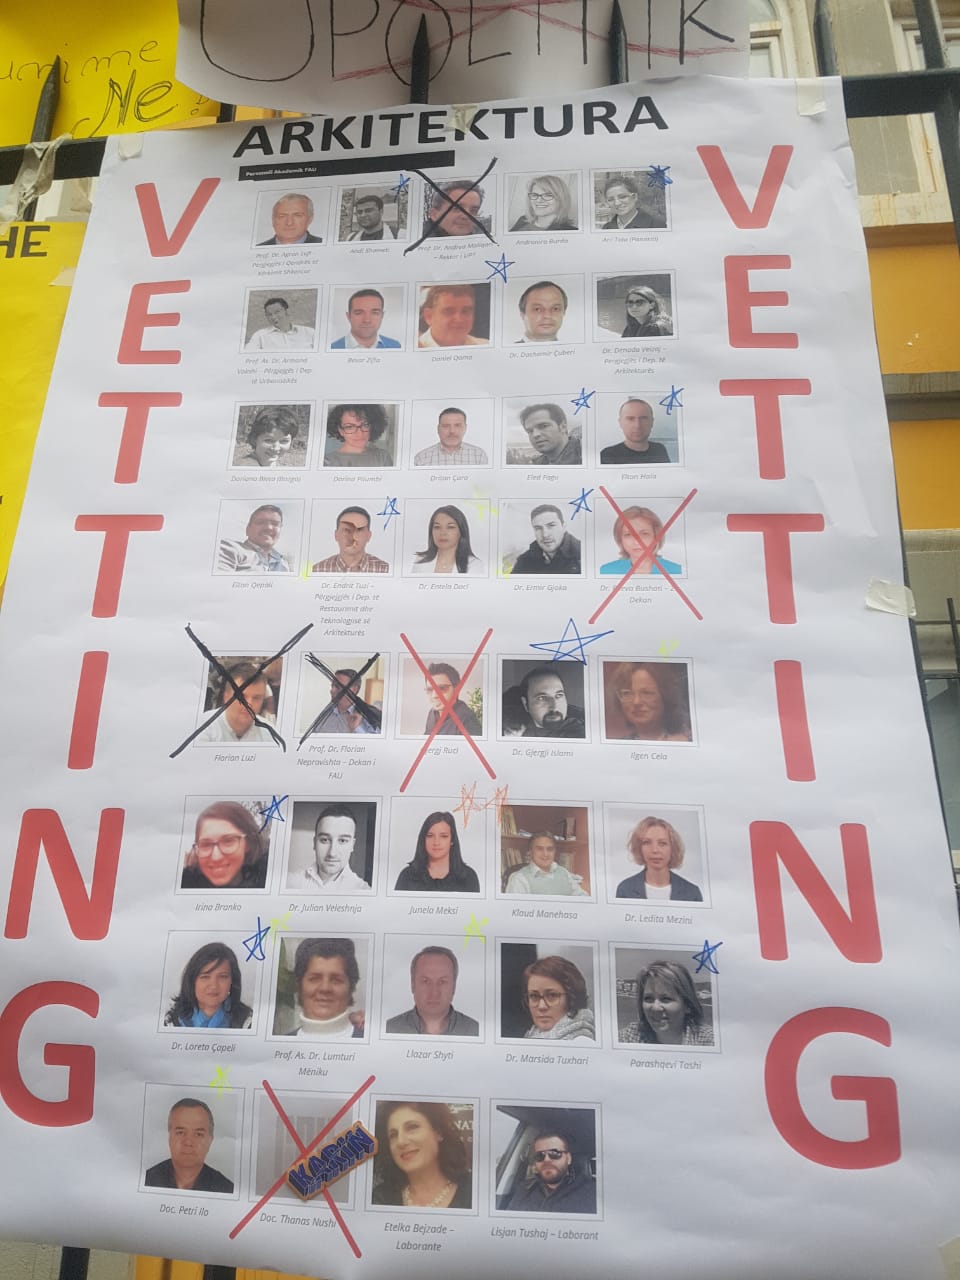 UPOLITIK
unime
Ne!
HE
ARKITEKTURA
Personeli Akademik FAU
VETTING
VETTING
Prof. Dr. Agron Lufi -
Përgjegjës i Qendrës së
Kërkimit Shkencor
Andi Shameti
Prof. Dr. Andrea Maliqari
– Rektor i UPT
Andronira Burda
Ani Tola (Panariti)
Prof. As. Dr. Armand
Vokshi – Përgjegjës i Dep.
të Urbanistikës
Besar Zifla
Daniel Qama
Dr. Dashamir Çuberi
Dr. Denada Veizaj –
Përgjegjës i Dep. të
Arkitekturës
Doriana Bleta (Bozgo)
Dorina Pllumbi
Dritan Çaro
Eled Fagu
Elton Hala
Elton Qepali
Dr. Endrit Tuzi –
Përgjegjës i Dep. të
Restaurimit dhe
Teknologjisë së
Arkitekturës
Dr. Entela Daci
Dr. Ermir Gjoka
Bushati – Z.
Dekan
Florian Luzi
Prof. Dr. Florian
Nepravishta – Dekan i
FAU
Gjergj Ruci
Dr. Gjergji Islami
Ilgen Cela
Irina Branko
Dr. Julian Veleshnja
Junela Meksi
Klaud Manehasa
Dr. Ledita Mezini
Dr. Loreta Çapeli
Prof. As. Dr. Lumturi
Mëniku
Llazar Shyti
Dr. Marsida Tuxhari
Parashqevi Tashi
KARIN
Doc. Petri Ilo
Doc. Thanas Nushi
Etelka Bejzade –
Laborante
Lisjan Tushaj – Laborant